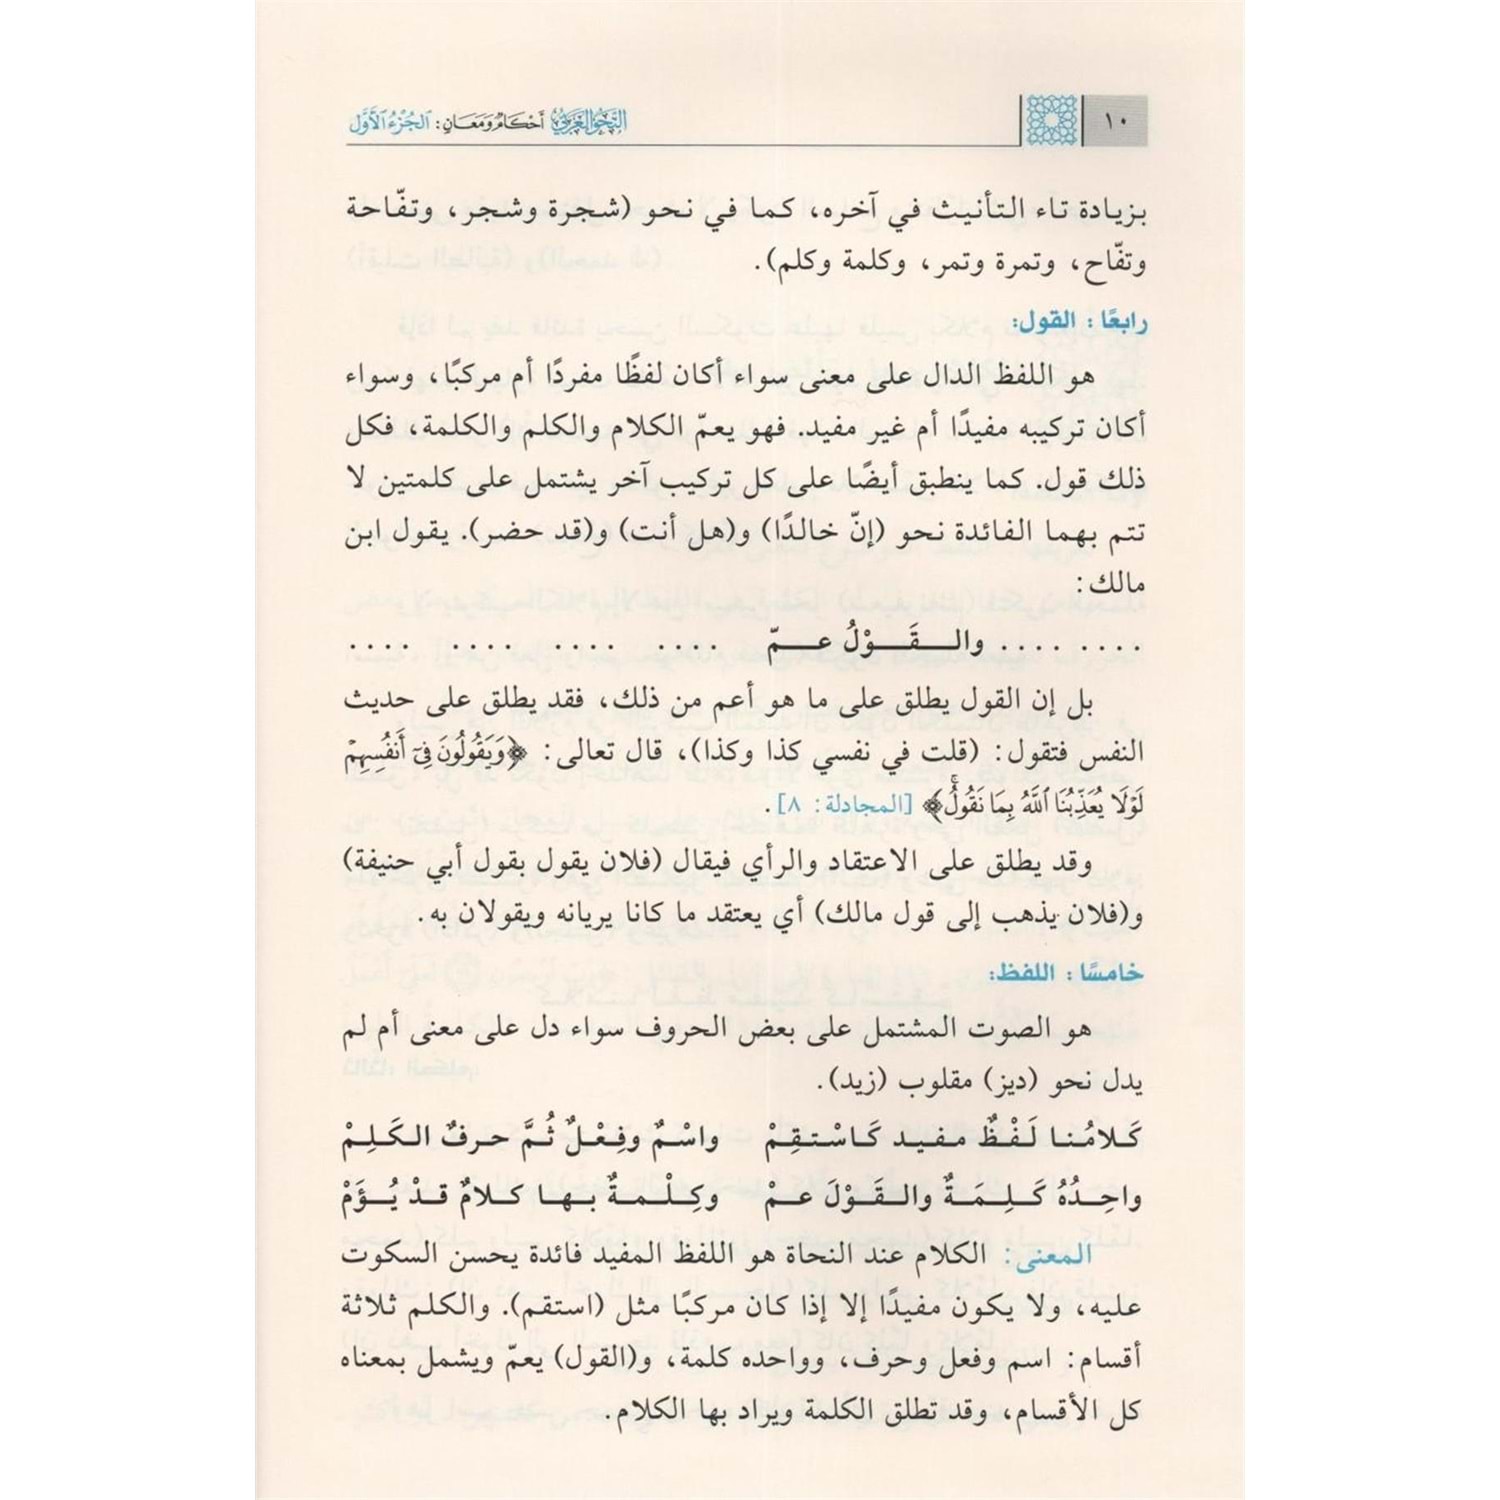 ١٠
النحو العربي أحكام ومعان: الجزء الأول
بزيادة تاء التأنيث في آخره، كما في نحو (شجرة وشجر، وتفّاحة
وتفّاح، وتمرة وتمر، وكلمة وكلم).
رابعًا: القول:
هو اللفظ الدال على معنى سواء أكان لفظًا مفردًا أم مركبًا، وسواء
أكان تركيبه مفيدًا أم غير مفيد. فهو يعمّ الكلام والكلم والكلمة، فكل
ذلك قول. كما ينطبق أيضًا على كل تركيب آخر يشتمل على كلمتين لا
تتم بهما الفائدة نحو (إنّ خالدًا) و(هل أنت) و(قد حضر). يقول ابن
مالك:
.... .... والقَوْلُ عمّ .... .... .... ....
بل إن القول يطلق على ما هو أعم من ذلك، فقد يطلق على حديث
النفس فتقول: (قلت في نفسي كذا وكذا)، قال تعالى: ﴿وَيَقُولُونَ فِىٓ أَنفُسِهِمْ
لَوْلَا يُعَذِّبُنَا ٱللَّهُ بِمَا نَقُولُۚ﴾ [المجادلة: ٨].
وقد يطلق على الاعتقاد والرأي فيقال (فلان يقول بقول أبي حنيفة)
و(فلان يذهب إلى قول مالك) أي يعتقد ما كانا يريانه ويقولان به.
خامسًا: اللفظ:
هو الصوت المشتمل على بعض الحروف سواء دل على معنى أم لم
يدل نحو (ديز) مقلوب (زيد).
كَلامُنا لَفْظٌ مفيد كَاسْتقِمْ واسْمٌ وفِعْلٌ ثُمَّ حرفٌ الكَلِمْ
واحِدُهُ كَلِمَةٌ والقَوْلَ عمْ وكِلْمةٌ بها كلامٌ قدْ يُؤَمْ
المعنى: الكلام عند النحاة هو اللفظ المفيد فائدة يحسن السكوت
عليه، ولا يكون مفيدًا إلا إذا كان مركبًا مثل (استقم). والكلم ثلاثة
أقسام: اسم وفعل وحرف، وواحده كلمة، و(القول) يعمّ ويشمل بمعناه
كل الأقسام، وقد تطلق الكلمة ويراد بها الكلام.